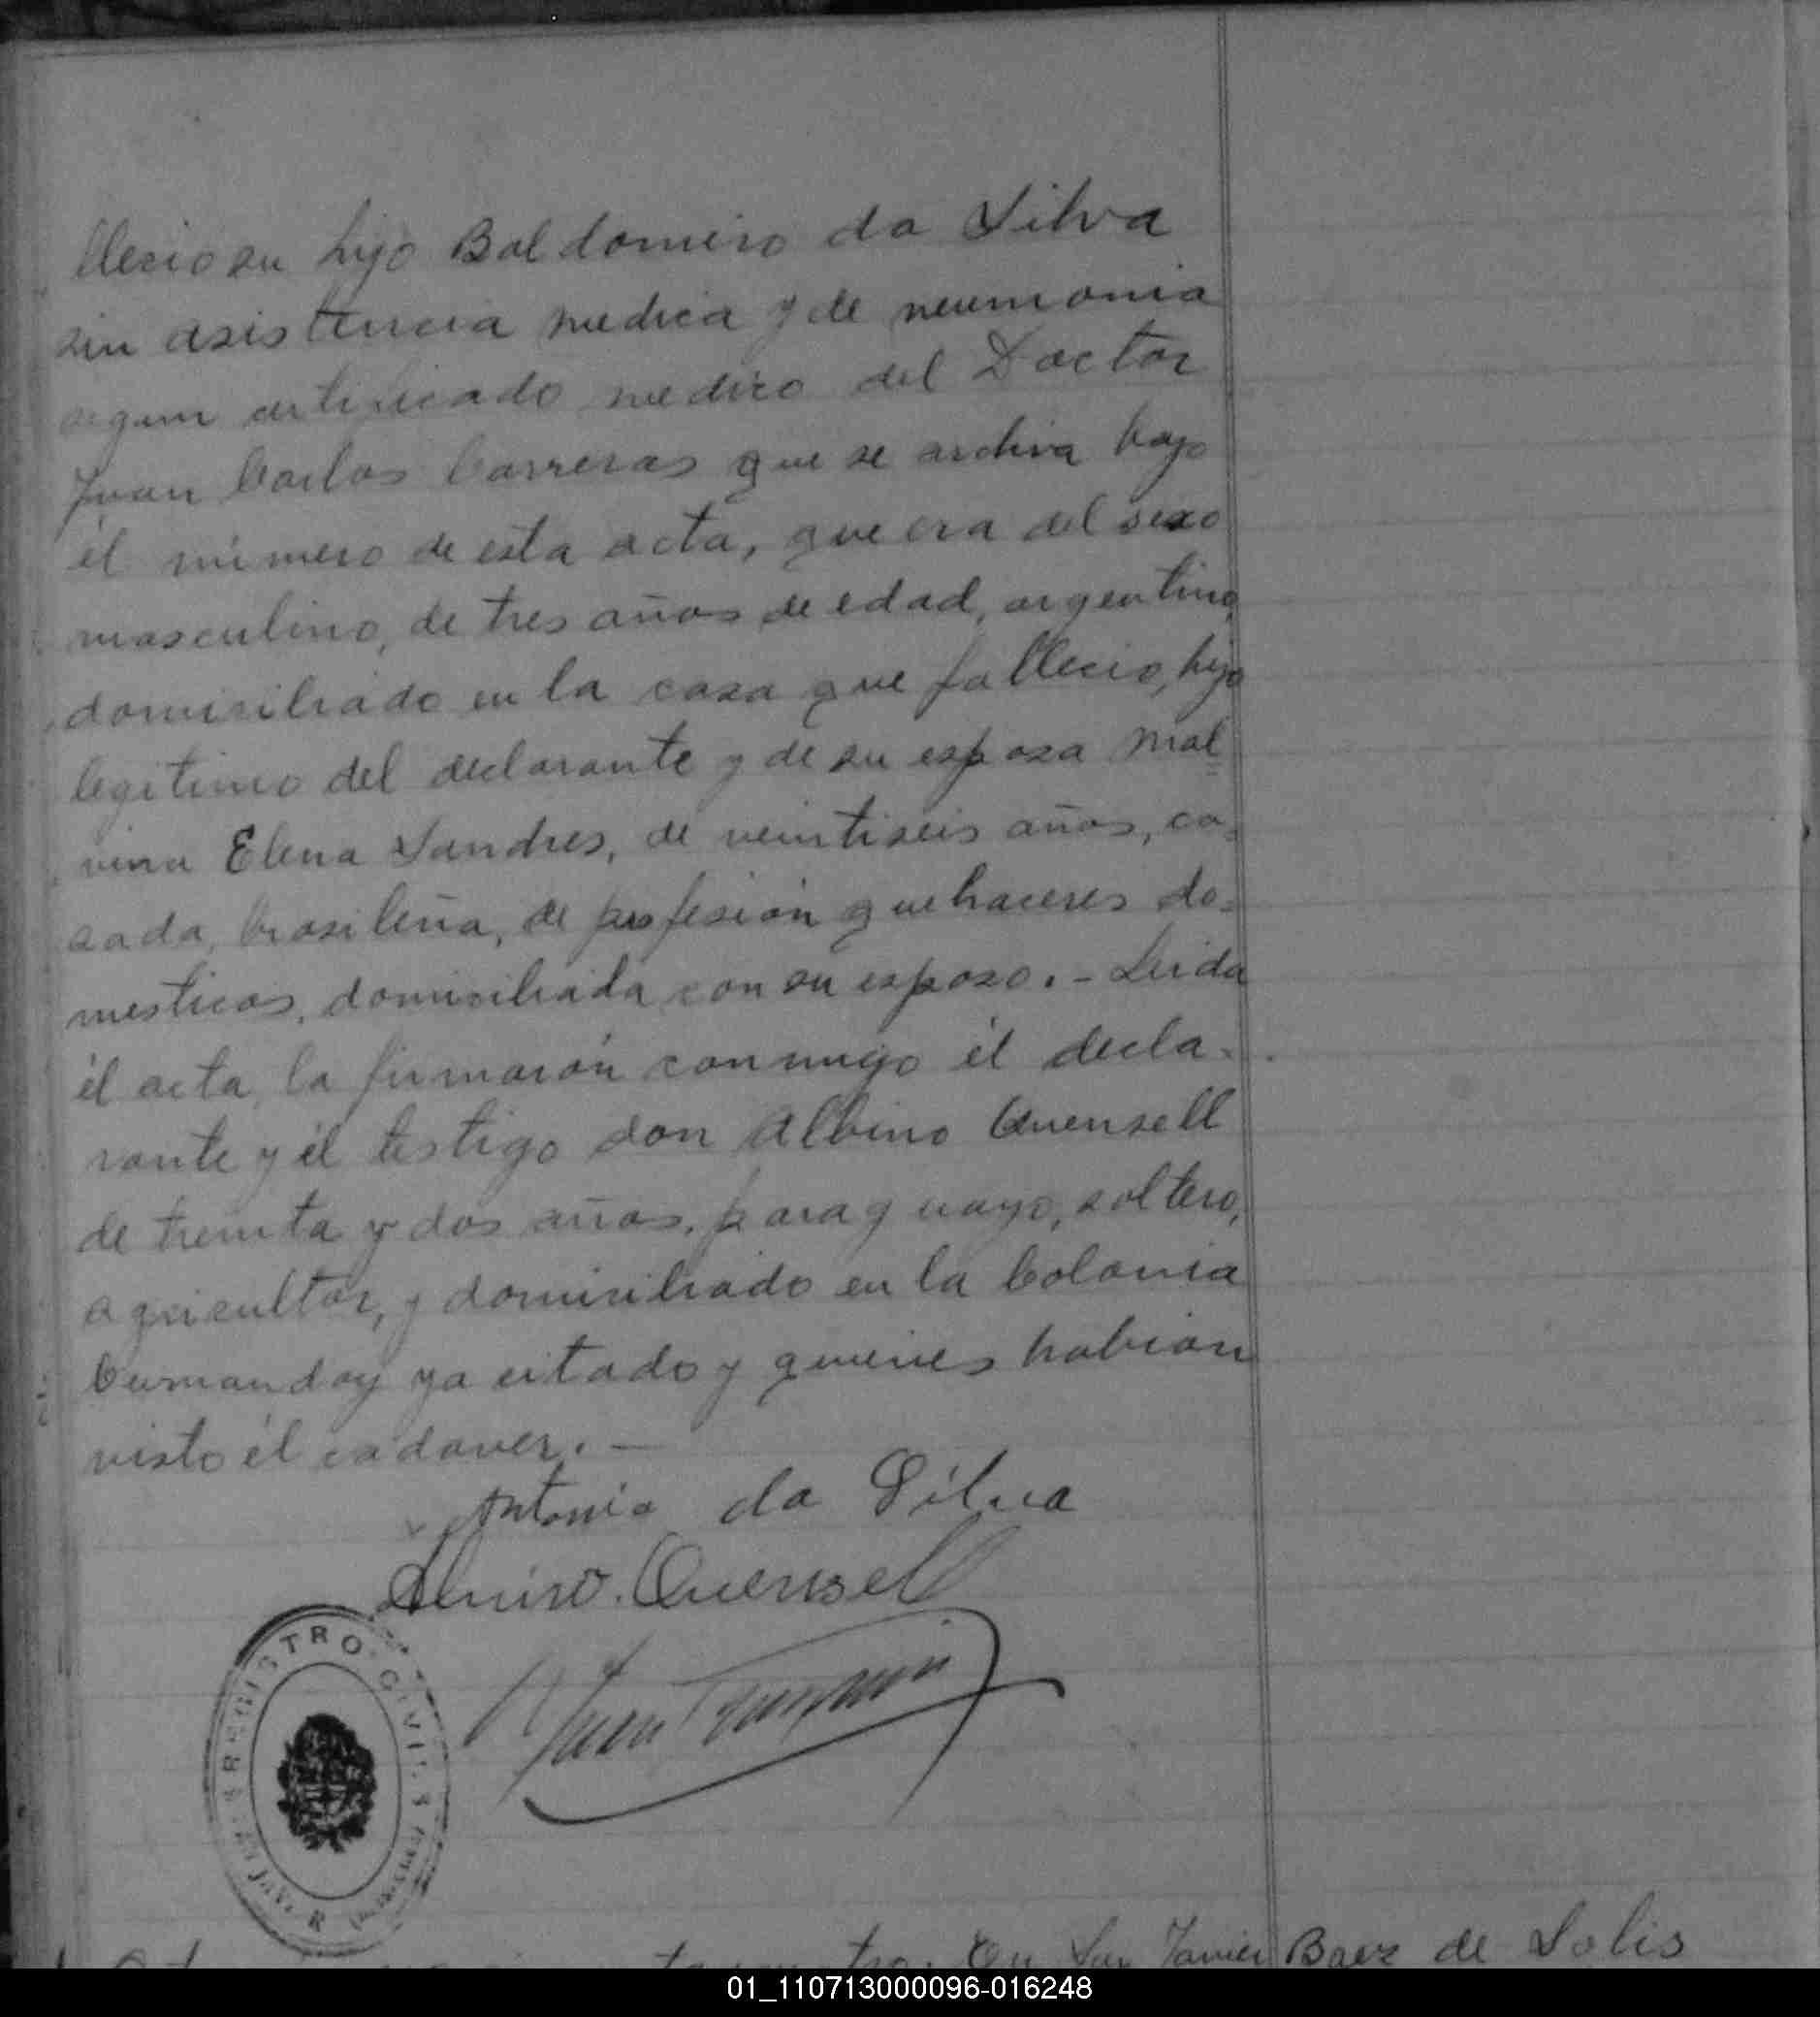 llecio su hijo Baldomero da Silva
sin asistencia medica y de neumonia
segun certificado medico del Doctor
Juan Carlos Carreras que se archiva bajo
él número de esta acta, que era del sexo
masculino, de tres años de edad, argentino,
domiciliado en la casa que fallecio, hijo
legitimo del declarante y de su esposa Mal
vina Elena Sandres, de veintiseis años, ca-
sada, brasileña, de profesión quehaceres do-
mesticos, domiciliada con su esposo.- Leida
él acta, la firmarón conmigo él decla-
rante y él testigo don Albino Quensell
de treinta y dos años, paraguayo, soltero,
agricultor, y domiciliado en la Colonia
Cumanday ya citado y quienes habian
visto él cadaver.—
Antonio da Silva
Quensell
Juan
REGISTRO CIVIL
JAVIER
En San Javier Baez de Solis
01_110713000096-016248